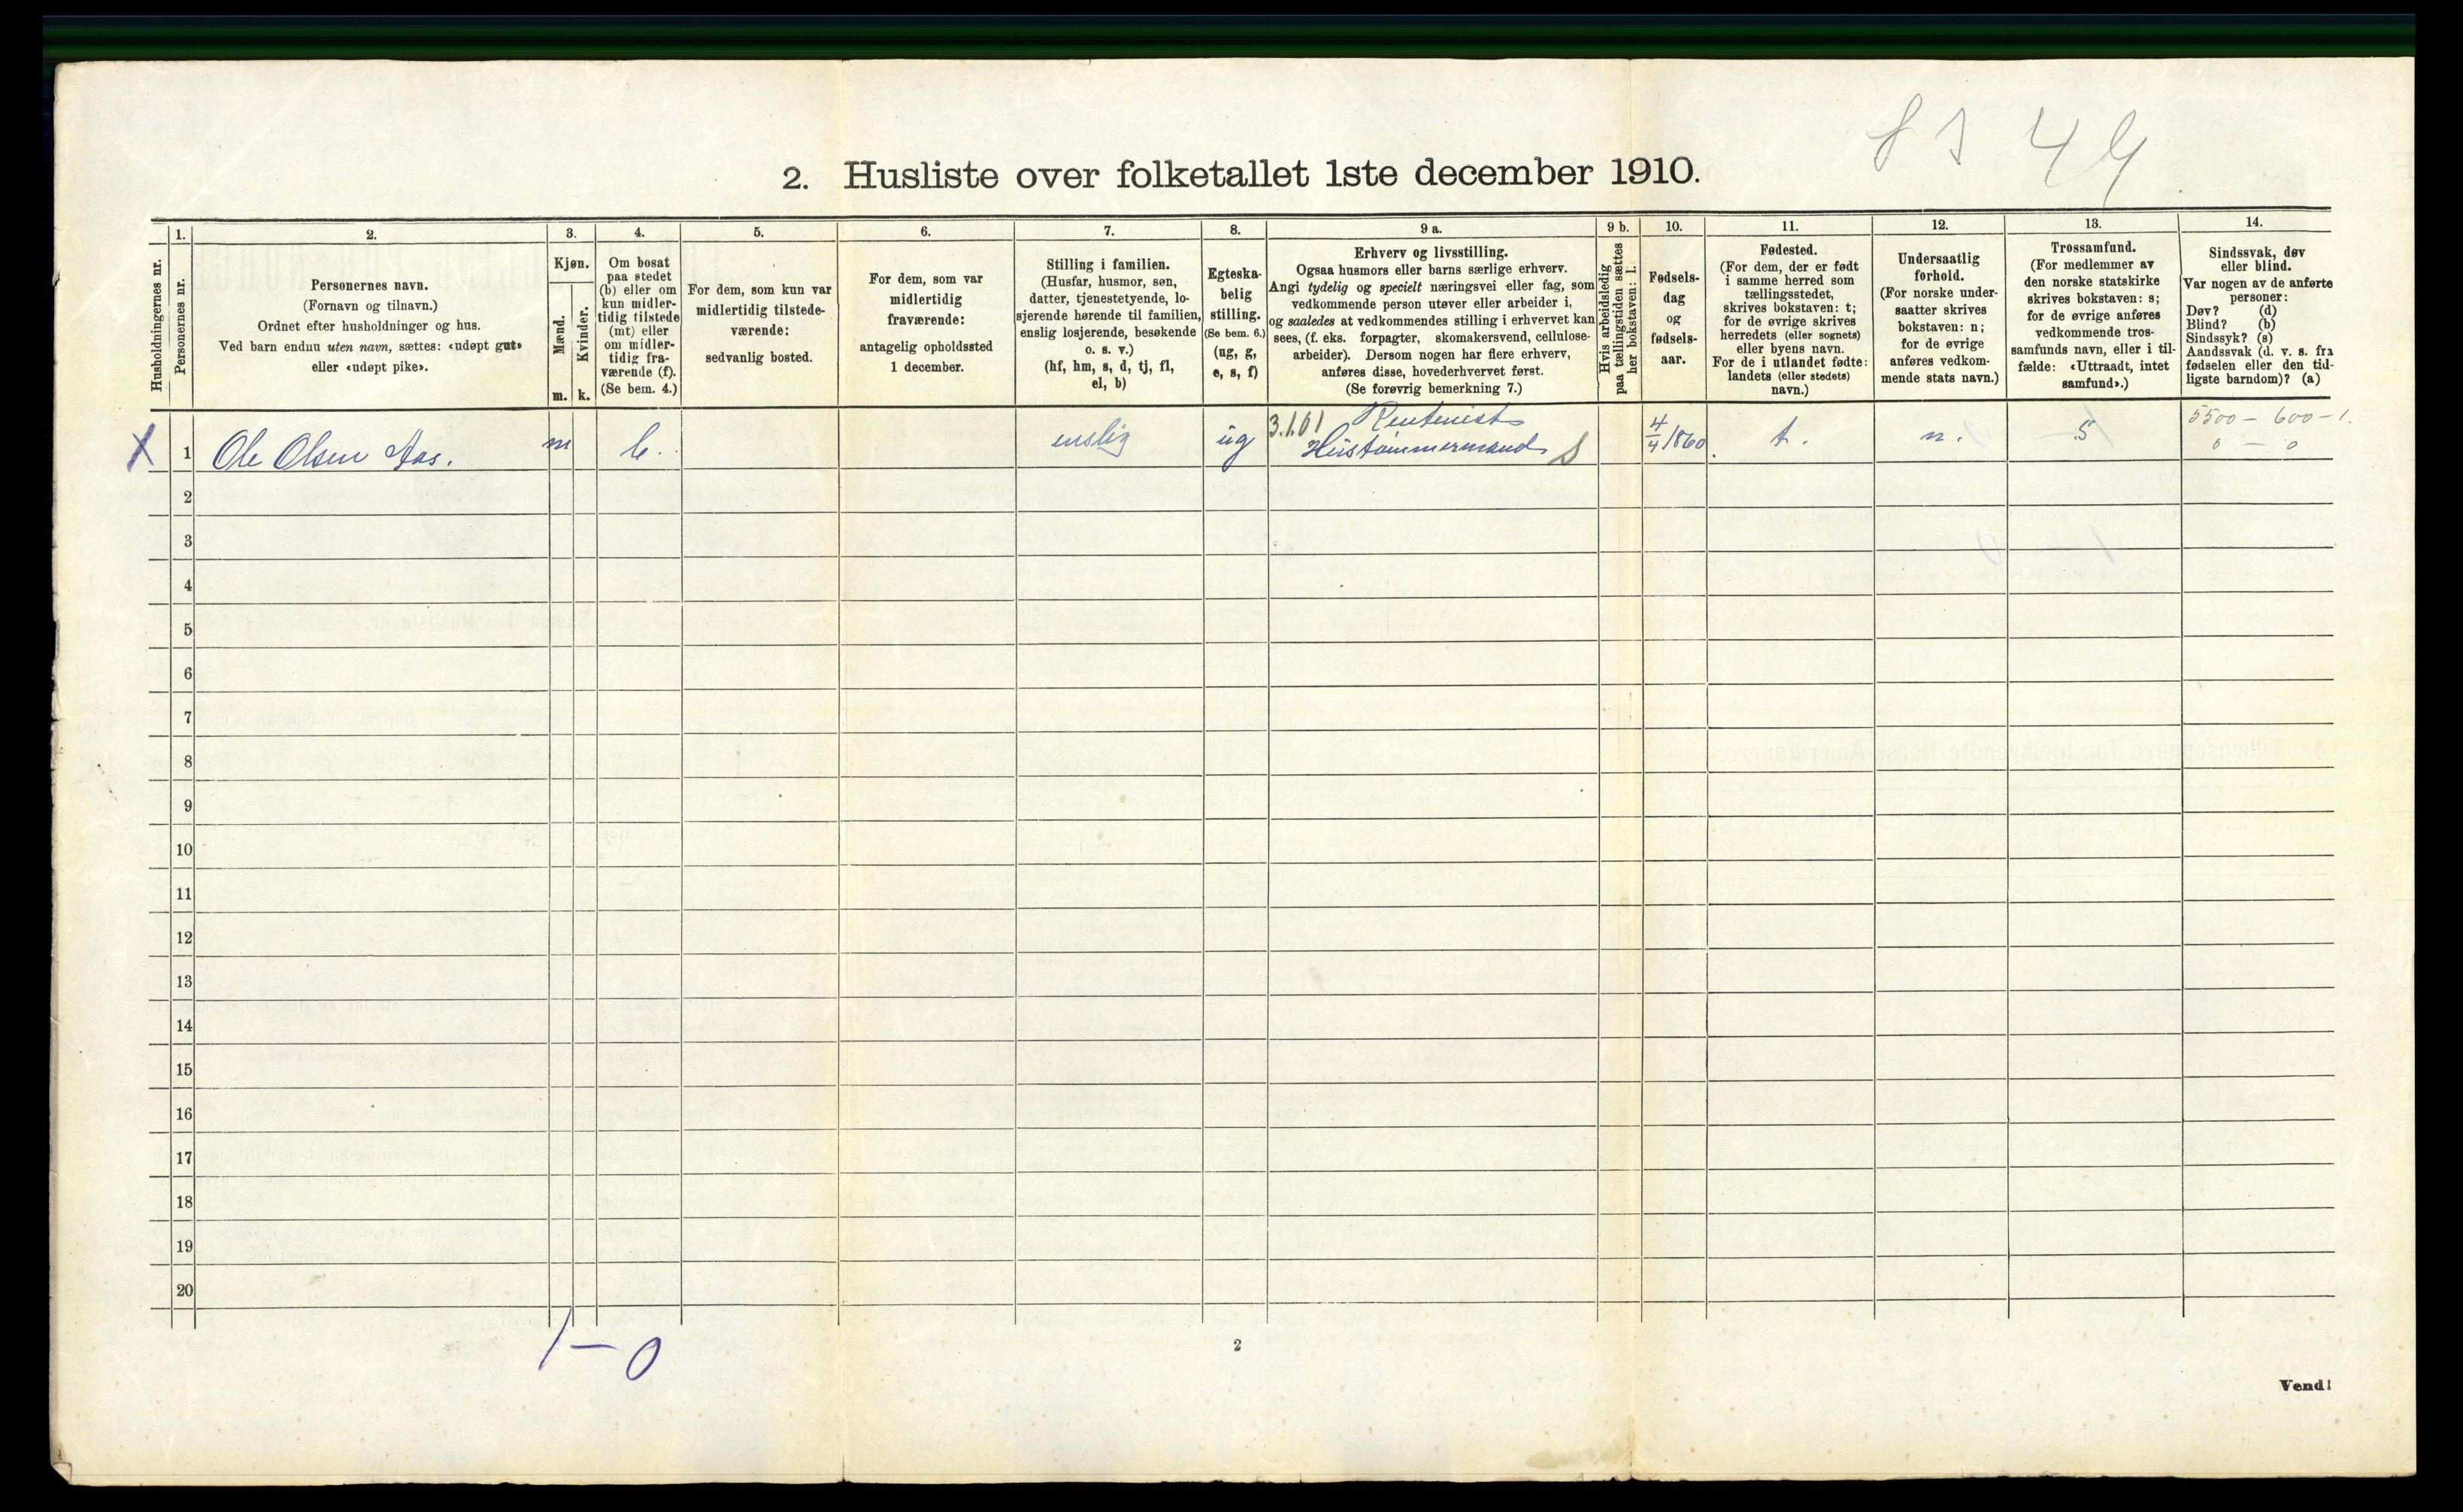 2. Husliste over folketallet 1ste december 1910.
44
Husholdningernes nr.
1.
Personernes nr.
2.
Personernes navn.
(Fornavn og tilnavn.)
Ordnet efter husholdninger og hus.
Ved barn endnu uten navn, sættes: «udøpt gut»
eller «udøpt pike».
3.
Kjøn.
Mænd.
Kvinder.
m. k.
4.
Om bosat
paa stedet
(b) eller om
kun midler-
tidig tilstede
(mt) eller
om midler-
tidig fra-
værende (f).
(Se bem. 4.)
5.
For dem, som kun var
midlertidig tilstede-
værende:
sedvanlig bosted.
6.
For dem, som var
midlertidig
fraværende:
antagelig opholdssted
1 december.
7.
Stilling i familien.
(Husfar, husmor, søn,
datter, tjenestetyende, lo-
sjerende hørende til familien,
enslig losjerende, besøkende
o. s. v.)
(hf, hm, s, d, tj, fl,
el, b)
8.
Egteska-
belig
stilling.
(Se bem. 6.)
(ug, g,
e, s, f)
9 a.
Erhverv og livsstilling.
Ogsaa husmors eller barns særlige erhverv.
Angi tydelig og specielt næringsvei eller fag, som
vedkommende person utøver eller arbeider i,
og saaledes at vedkommendes stilling i erhvervet kan
sees, (f. eks. forpagter, skomakersvend, cellulose-
arbeider). Dersom nogen har flere erhverv,
anføres disse, hovederhvervet først.
(Se forøvrig bemerkning 7.)
9 b.
Hvis arbeidsledig
paa tællingstiden sættes
her bokstaven: l.
10.
Fødsels-
dag
og
fødsels-
aar.
11.
Fødested.
(For dem, der er født
i samme herred som
tællingsstedet,
skrives bokstaven: t;
for de øvrige skrives
herredets (eller sognets)
eller byens navn.
For de i utlandet fødte:
landets (eller stedets)
navn.)
12.
Undersaatlig
forhold.
(For norske under-
saatter skrives
bokstaven: n;
for de øvrige
anføres vedkom-
mende stats navn.)
13.
Trossamfund.
(For medlemmer av
den norske statskirke
skrives bokstaven: s;
for de øvrige anføres
vedkommende tros-
samfunds navn, eller i til-
fælde: «Uttraadt, intet
samfund».)
14.
Sindssvak, døv
eller blind.
Var nogen av de anførte
personer:
Døv? (d)
Blind? (b)
Sindssyk? (s)
Aandssvak (d. v. s. fra
fødselen eller den tid-
ligste barndom)? (a)
3.1.01 Rentenist 5500 - 600 - 1.
X 1 Ole Olsen Aas. m b. enslig ug Hustømmermand S 4/4 1860 t. n. S 0 - 0
2
3
4
5
6
7
8
9
10
11
12
13
14
15
16
17
18
19
20
1 - 0
2
Vend!